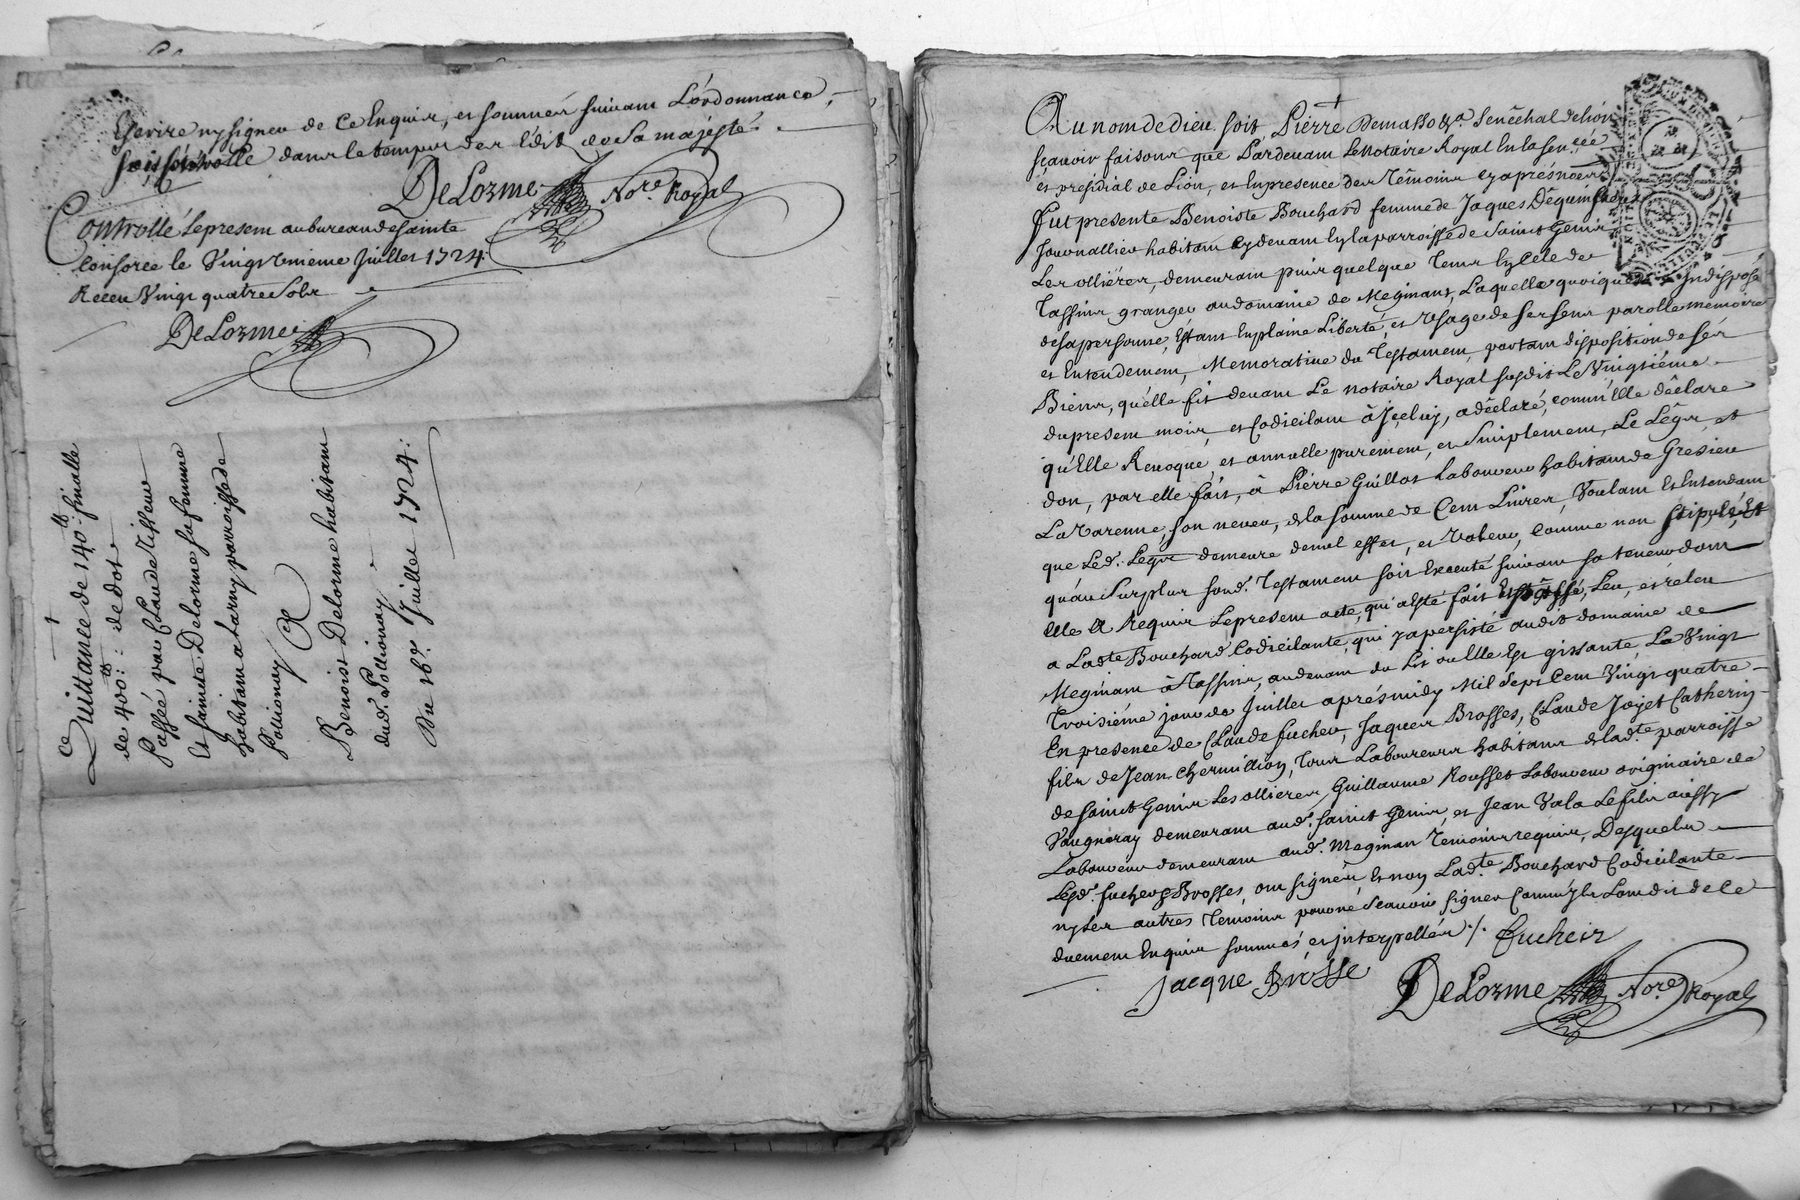 Escrire ny signer de ce Enquis, et sommés suivant L'ordonnance,
soit controllé dans le temps des Edits de Sa majesté.
DeLorme Nore. Royal
Controllé le present au bureau de Sainte
Consorce le Vingt unieme Juillet 1724
Receu Vingt quatre Sols
DeLorme
ce
Quittance de 140.tt finalle
de 400:tt: de dot
Passée par Claude Tisseur
Et Jeanne Delorme sa femme
habitans a Larny parroisse de
Pollionay
A
Benoist Delorme habitant
dud. Pollionay
Du 16e. Juillet 1724.
Au nom de Dieu soit, Pierre Demasso &a. Senêchal de Lion
sçavoir faisons que Pardevant Le Notaire Royal En la Sen.ceé
et presidial de Lion, et En presence des Têmoins cy aprés nom̃és
fut presente Benoiste Bouchard femme de Jaques
Journallier habitant Cy devant En la parroisse de Sainct Genis
Les ollières, demeurant puis quelque Tems En celle de
Tassins granger au domaine de Meginant, Laquelle quoique Indisposé
de sa personne, Estant En plaine Liberté, et Usage de ses sens parolle memoire
et Entendement, Memorative du Testament, portant disposition de ses
Biens, qu'elle fit devant Le notaire Royal susdit Le Vingtiéme
du present mois, et Codicilant à Jcelluy, a dêclaré, comm'Elle dêclare
qu'Elle Revoque, et annulle purement, et Simplement, Le Lêgs, et
don, par elle fait, à Pierre Guillot Laboureur habitant de Gresieu
La Varenne, son neveu, de la somme de Cent Livres, Voulant Et Entendant
que Led. Legs demeure de nul effet, et Valeur, comme non stipulé, Et
qu'au Surplus sond. Testament soit Executé suivant sa teneur dont
Elle A Requis Le present acte, qui a Esté fait Et passé, Leu, et releu
a Ladte Bouchard Codicilante, qui y a persisté audit domaine de
Meginant à Tassins, audevant du Lit ou Elle Est gissante, Le Vingt
Troisiéme jour de Juillet aprés midy Mil Sept Cent Vingt quatre
En presence de Claude fucher, Jaques Brosses, Claude Joyet Catherin
fils de Jean Chermillion, Tous Laboureurs habitans de Ladte parroisse
de Sainct Genis Les ollieres, Guillaume Rousset Laboureur originaire de
Vaugneray demeurant aud. Sainct Genis, et Jean Vala Le fils aussy
Laboureur demeurant aud. Meginan Temoins requis, Desquels
Lesd. fucher & Brosses, ont signés, Et non Ladte Bouchard Codicilante
ny les autres Temoins pour ne Sçavoir signer Comm'ils L'ont dit de ce
duement Enquis sommés et jnterpellés ./. fucheir
Jacque Brosse
DeLorme Nore. Royal